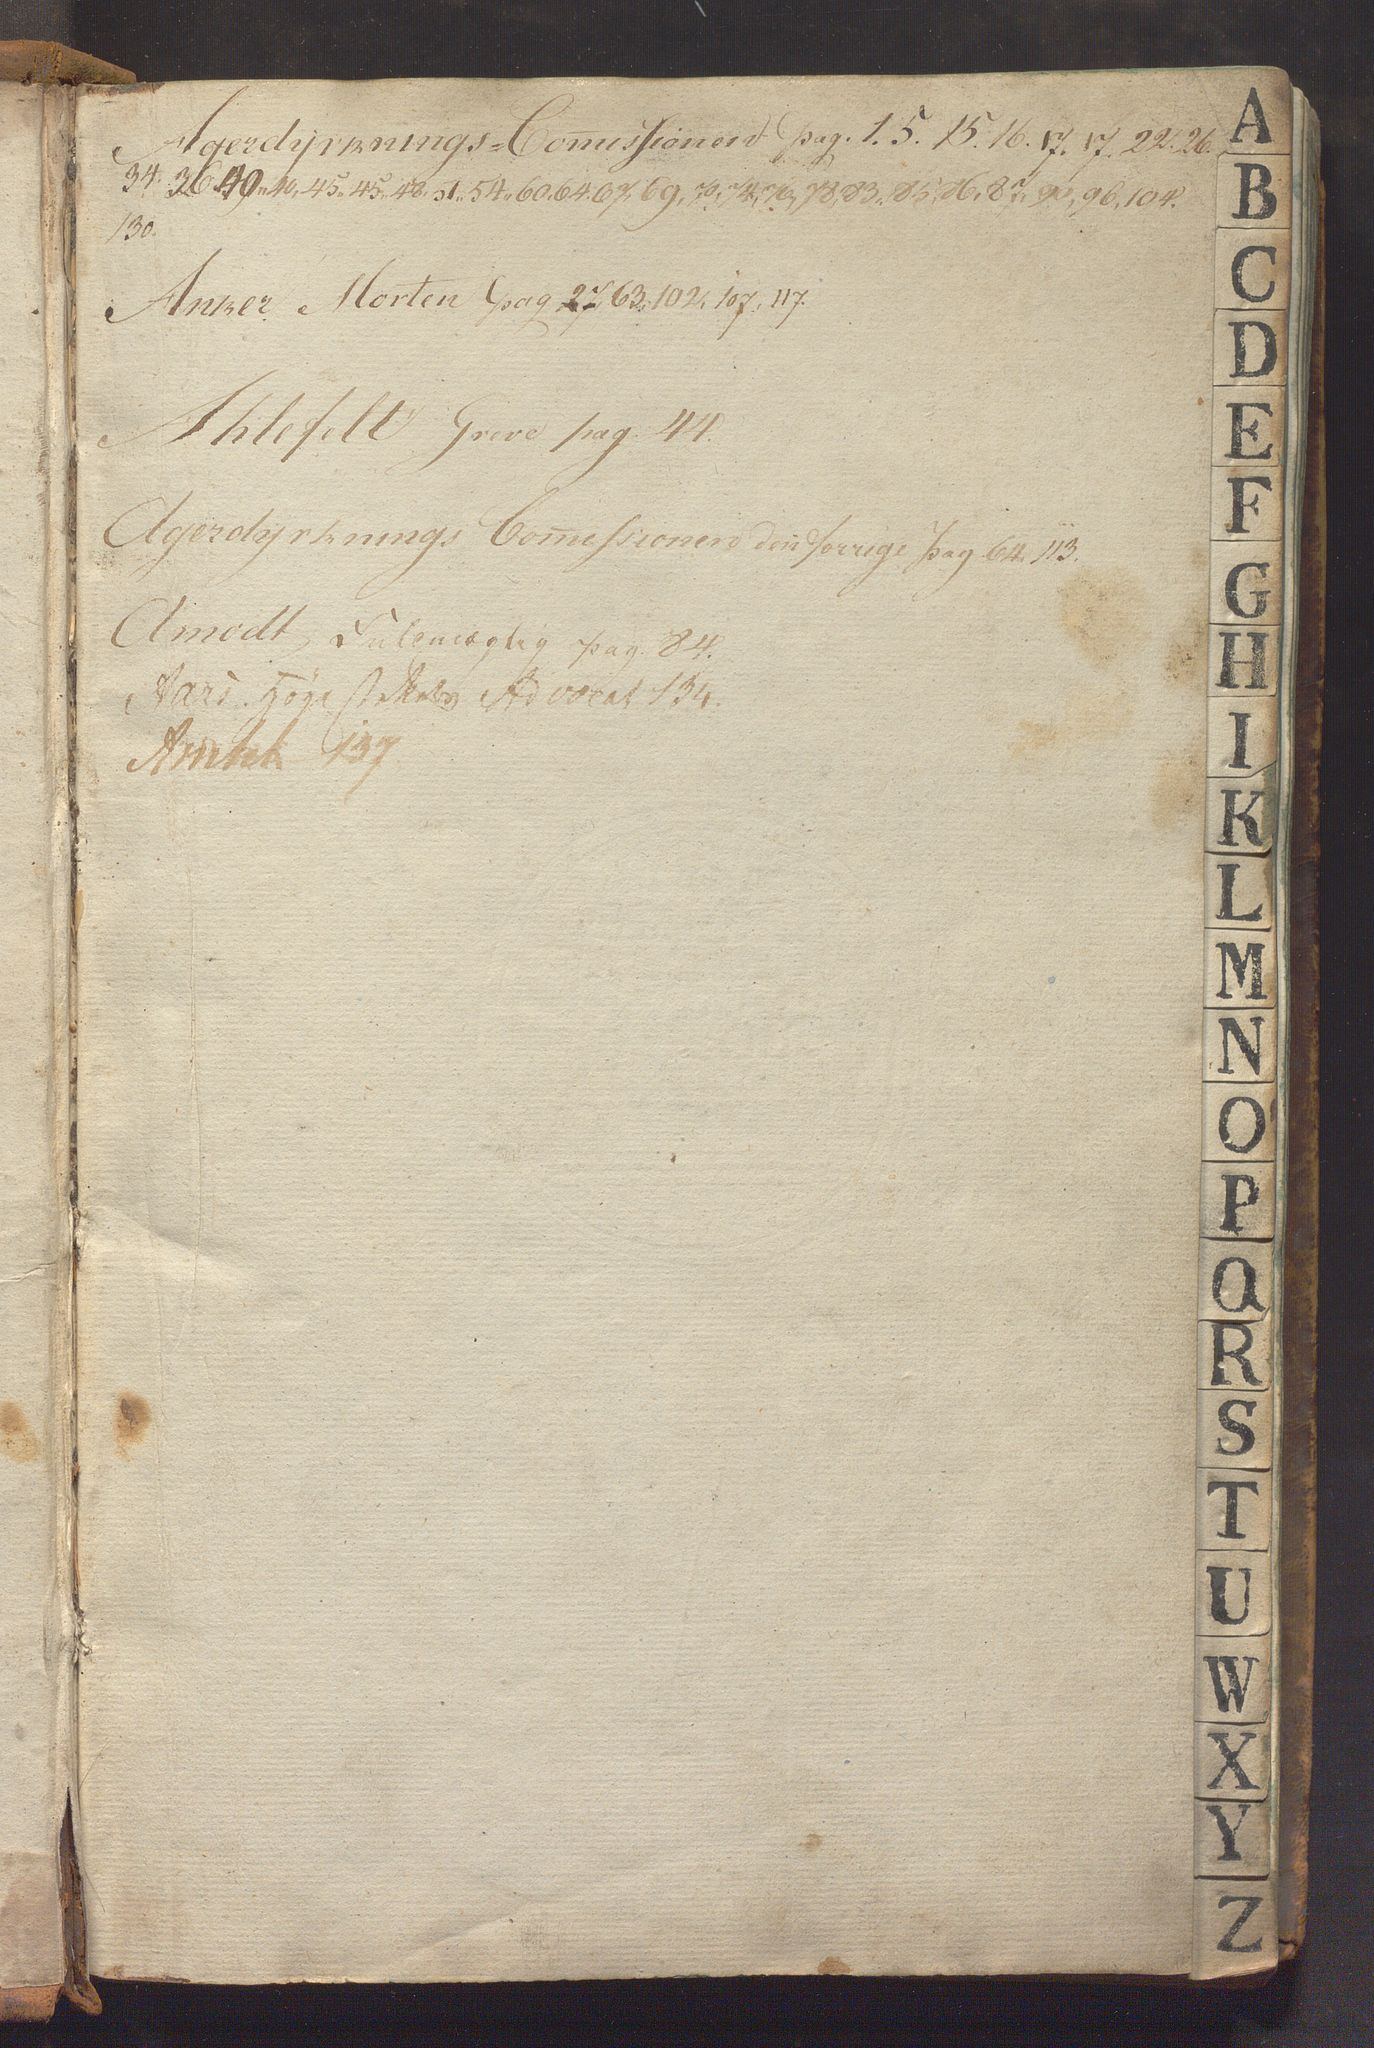 Agerdyrknings-Comissionen pag. 1. 5. 15. 16. 17. 17. 22. 26.
34. 36. 40. 40. 45. 45. 48. 51. 54. 60. 64. 67. 69. 70. 74. 76. 78. 83. 85. 86. 87. 90. 96. 104.
130.
Anker Morten pag 27. 63. 102. 107. 117.
Ahlefelt Greve pag. 44.
Agerdyrknings Comissionen den forrige pag 64. 113.
Amodt, pag. 84.
Aars Advocat 134.
137
A
B
C
D
E
F
G
H
I
K
L
M
N
O
P
Q
R
S
T
U
W
X
Y
Z